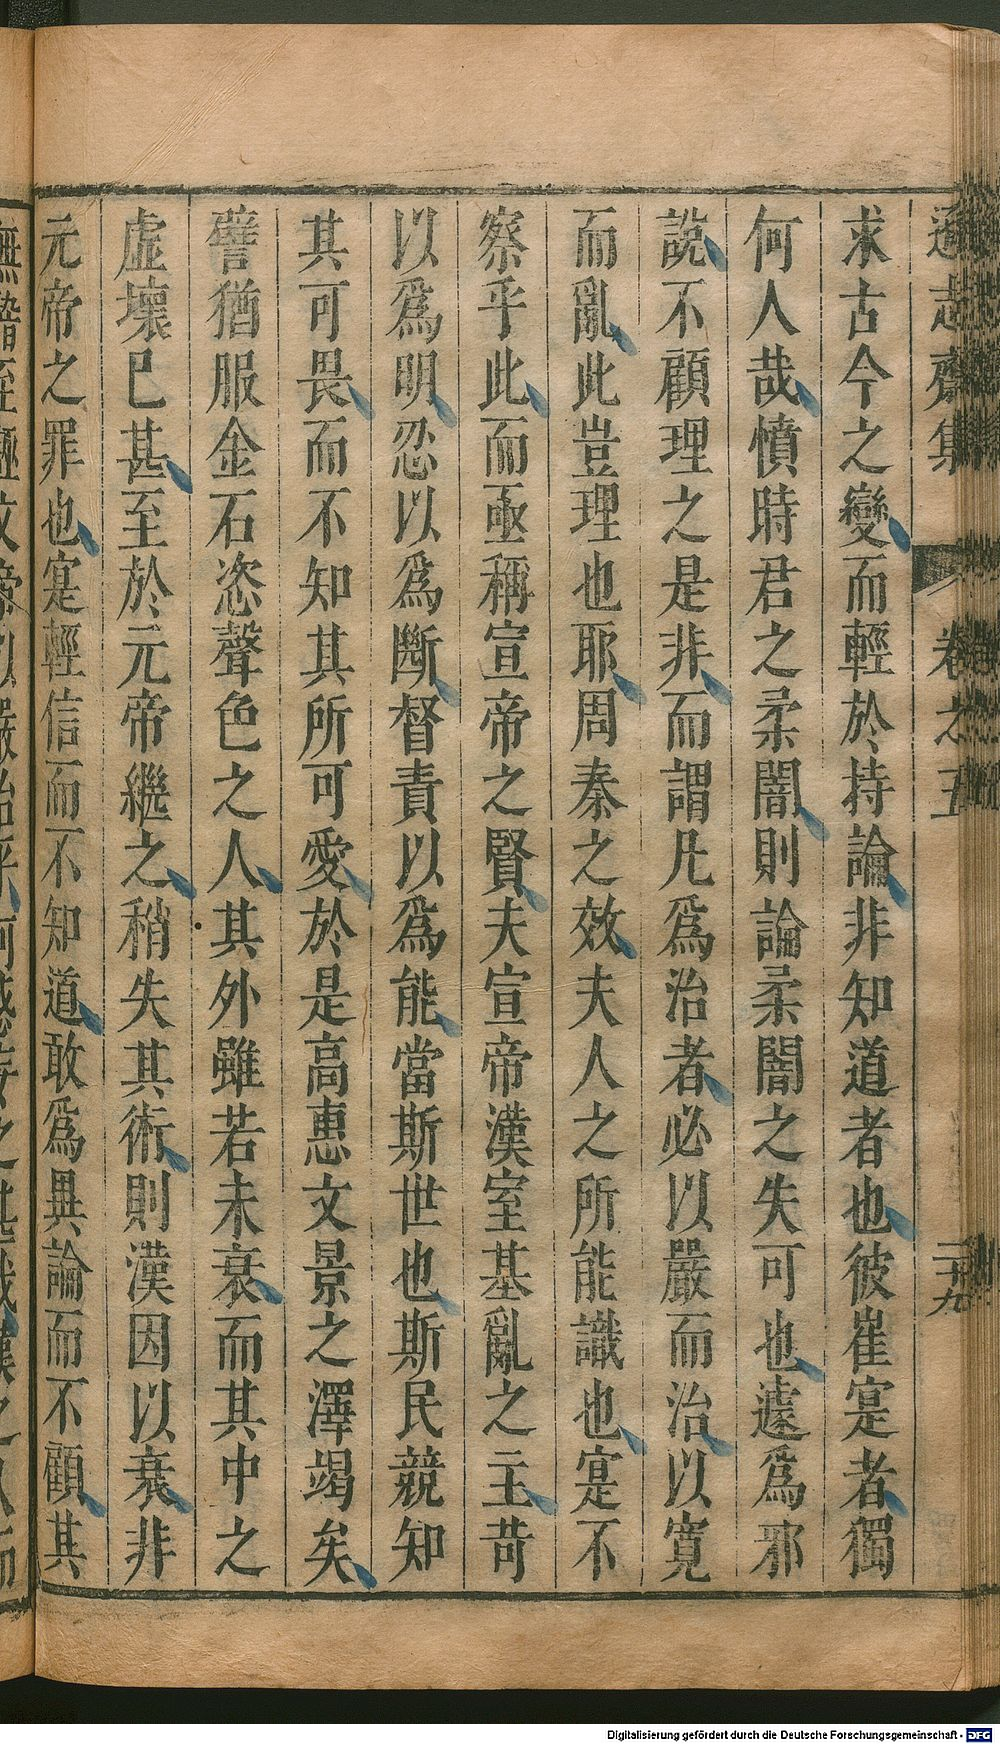 遜志齋集 卷之五 二十九
求古今之變而輕於持論非知道者也彼崔寔者獨
何人哉憤時君之柔闇則論柔闇之失可也遽爲邪
說不顧理之是非而謂凡爲治者必以嚴而治以寬
而亂此豈理也耶周秦之效夫人之所能識也寔不
察乎此而亟稱宣帝之賢夫宣帝漢室基亂之主苛
以爲明忍以爲斷督責以爲能當斯世也斯民競知
其可畏而不知其所可愛於是高惠文景之澤竭矣
譬猶服金石恣聲色之人其外雖若未衰而其中之
虛壞已甚至於元帝繼之稍失其術則漢因以衰非
元帝之罪也寔輕信而不知道敢爲異論而不顧其
Digitalisierung gefördert durch die Deutsche Forschungsgemeinschaft - DFG